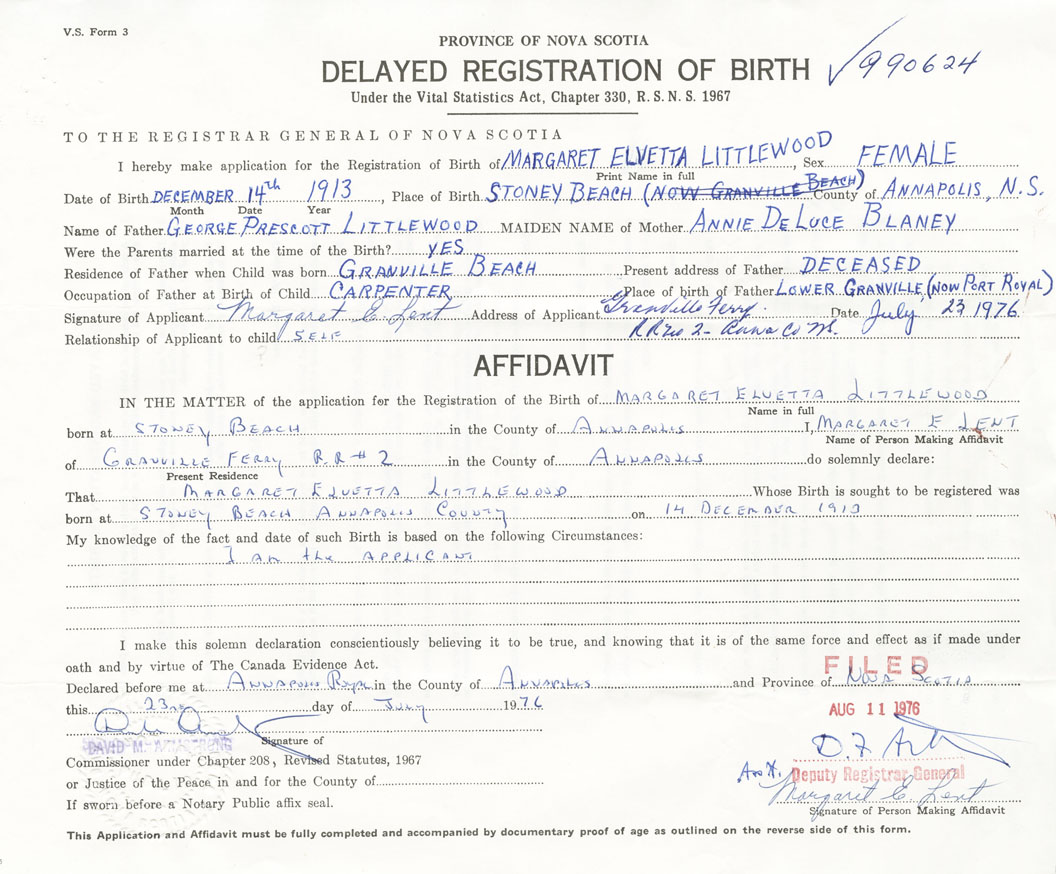 V.S. Form 3
PROVINCE OF NOVA SCOTIA
DELAYED REGISTRATION OF BIRTH ✓990624
Under the Vital Statistics Act, Chapter 330, R. S. N. S. 1967
TO THE REGISTRAR GENERAL OF NOVA SCOTIA
I hereby make application for the Registration of Birth of MARGARET ELVETTA LITTLEWOOD, Sex FEMALE
Print Name in full
Date of Birth DECEMBER 14th 1913, Place of Birth STONEY BEACH (NOW GRANVILLE BEACH) County of ANNAPOLIS, N.S.
Month Date Year
Name of Father GEORGE PRESCOTT LITTLEWOOD MAIDEN NAME of Mother ANNIE DELUCE BLANEY
Were the Parents married at the time of the Birth? YES
Residence of Father when Child was born GRANVILLE BEACH Present address of Father DECEASED
Occupation of Father at Birth of Child CARPENTER Place of birth of Father LOWER GRANVILLE (NOW PORT ROYAL)
Signature of Applicant Margaret E Lent Address of Applicant Granville Ferry. Date July 23 1976
RR no 2 - Anna Co
Relationship of Applicant to child SELF
AFFIDAVIT
IN THE MATTER of the application for the Registration of the Birth of MARGARET ELVETTA LITTLEWOOD
Name in full
born at STONEY BEACH in the County of ANNAPOLIS I, MARGARET E LENT
Name of Person Making Affidavit
of GRANVILLE FERRY R.R # 2 in the County of ANNAPOLIS do solemnly declare:
Present Residence
That MARGARET ELVETTA LITTLEWOOD Whose Birth is sought to be registered was
born at STONEY BEACH ANNAPOLIS COUNTY on 14 DECEMBER 1913
My knowledge of the fact and date of such Birth is based on the following Circumstances:
I am the APPLICANT
I make this solemn declaration conscientiously believing it to be true, and knowing that it is of the same force and effect as if made under
oath and by virtue of The Canada Evidence Act.
FILED
Declared before me at ANNAPOLIS ROYAL in the County of ANNAPOLIS and Province of NOVA SCOTIA
this 23rd day of July 1976
AUG 11 1976
DAVID M. ARMSTRONG
Signature of
Commissioner under Chapter 208, Revised Statutes, 1967
Deputy Registrar General
or Justice of the Peace in and for the County of
Margaret E Lent
Signature of Person Making Affidavit
If sworn before a Notary Public affix seal.
This Application and Affidavit must be fully completed and accompanied by documentary proof of age as outlined on the reverse side of this form.